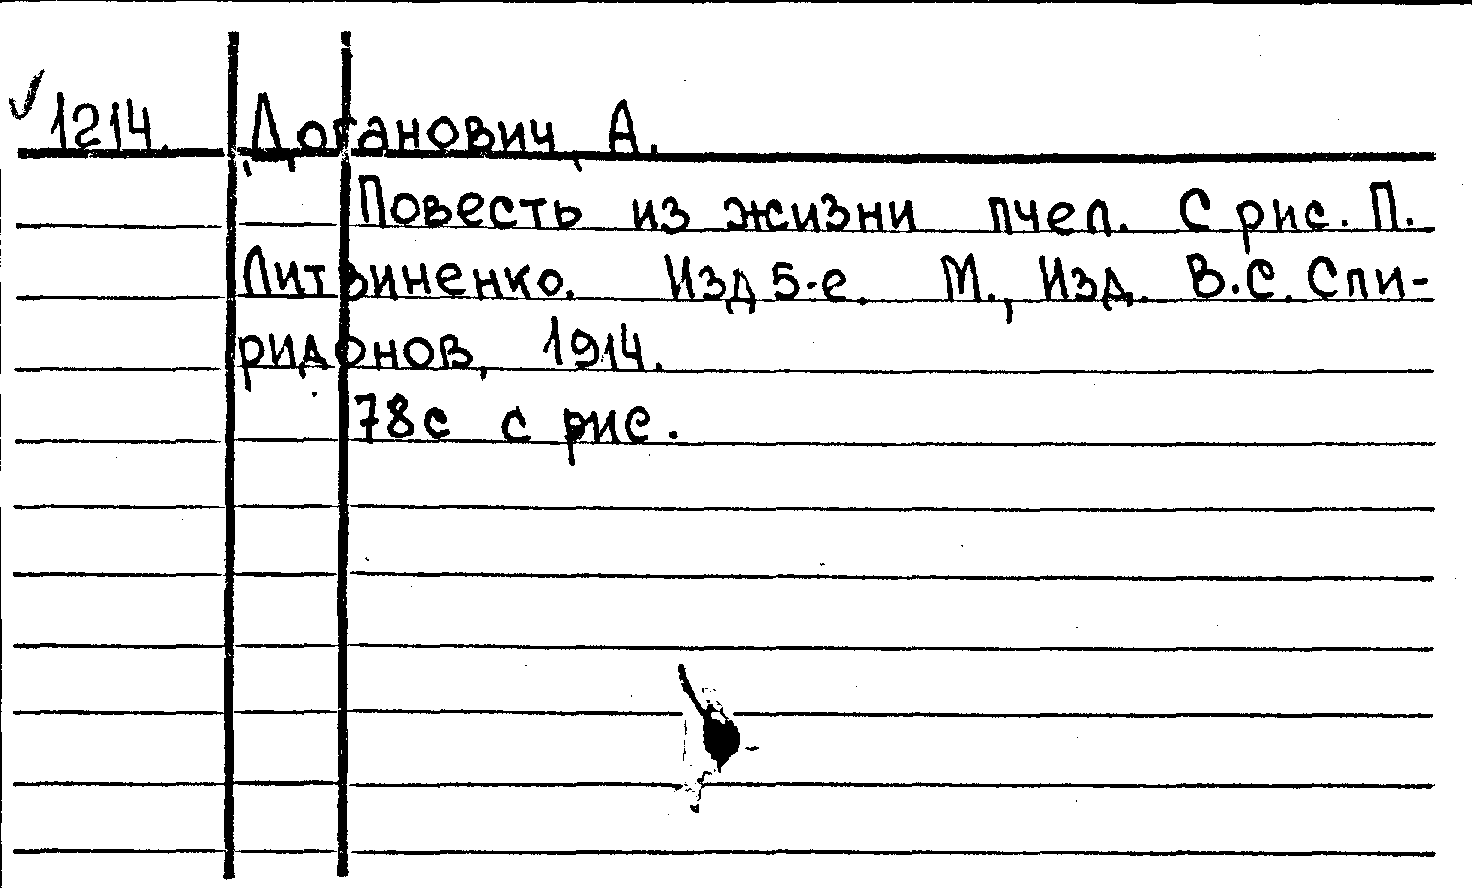 1214. Доганович, А.
Повесть из жизни пчел. С рис. П.
Литвиненко. Изд 5-е. М., Изд. В.С. Спи-
ридонов, 1914.
78с с рис.